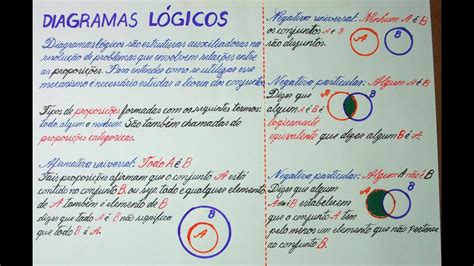 DIAGRAMAS LÓGICOS
Diagramas lógicos são estruturas auxiliadoras na
resolução de problemas que envolvem relações entre
as proposições. Para entender como se utiliza esse
mecanismo é necessário estudar a teoria dos conjuntos.
Tipos de proposições formadas com os seguintes termos:
todo, algum e nenhum. São também chamadas de
proposições categóricas.
Afirmativa universal: Todo A é B
Tais proposições afirmam que o conjunto A está
contido no conjunto B, ou seja todo e qualquer elemento
de A também é elemento de B
dizer que todo A é B não significa
que todo B é A.
A
B
Negativa universal: Nenhum A é B
os conjuntos
A e B
são disjuntos.
A
B
Negativa particular: Algum A é B
Dizer que
algum
A é B é
logicamente
equivalente que dizer algum B é A.
A
B
Negativa particular: Algum A não é B
Dizer que algum
A não é B estabelecem
que o conjunto A tem
pelo menos um elemento que não pertence
ao conjunto B.
A
B